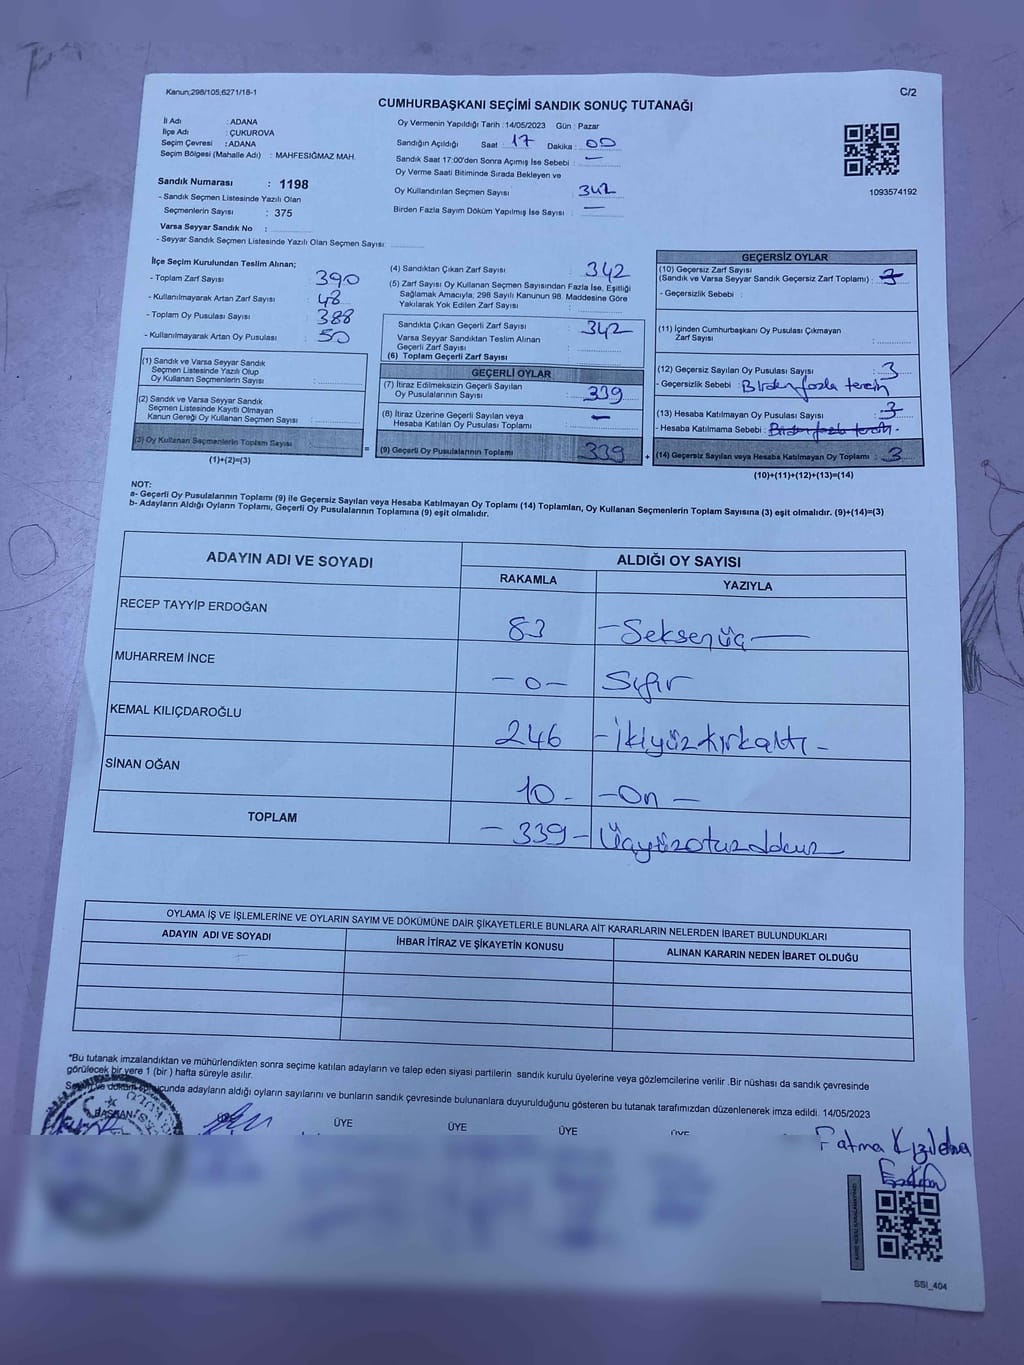 Kanun;298/105,6271/18-1
C/2
CUMHURBAŞKANI SEÇİMİ SANDIK SONUÇ TUTANAĞI
İl Adı : ADANA
İlçe Adı : ÇUKUROVA
Seçim Çevresi : ADANA
Seçim Bölgesi (Mahalle Adı) : MAHFESIĞMAZ MAH.
Sandık Numarası : 1198
- Sandık Seçmen Listesinde Yazılı Olan
Seçmenlerin Sayısı : 375
Varsa Seyyar Sandık No :
- Seyyar Sandık Seçmen Listesinde Yazılı Olan Seçmen Sayısı:
Oy Vermenin Yapıldığı Tarih :14/05/2023 Gün : Pazar
Sandığın Açıldığı Saat : 17 Dakika : 00
Sandık Saat 17:00'den Sonra Açımış İse Sebebi : —
Oy Verme Saati Bitiminde Sırada Bekleyen ve
Oy Kullandırılan Seçmen Sayısı : 342
Birden Fazla Sayım Döküm Yapılmış İse Sayısı : —
1093574192
İlçe Seçim Kurulundan Teslim Alınan;
- Toplam Zarf Sayısı : 390
- Kullanılmayarak Artan Zarf Sayısı : 48
- Toplam Oy Pusulası Sayısı : 388
- Kullanılmayarak Artan Oy Pusulası : 50
(1) Sandık ve Varsa Seyyar Sandık
Seçmen Listesinde Yazılı Olup
Oy Kullanan Seçmenlerin Sayısı :
(2) Sandık ve Varsa Seyyar Sandık
Seçmen Listesinde Kayıtlı Olmayan
Kanun Gereği Oy Kullanan Seçmen Sayısı :
(3) Oy Kullanan Seçmenlerin Toplam Sayısı :
(1)+(2)=(3)
(4) Sandıktan Çıkan Zarf Sayısı : 342
(5) Zarf Sayısı Oy Kullanan Seçmen Sayısından Fazla İse, Eşitliği
Sağlamak Amacıyla; 298 Sayılı Kanunun 98. Maddesine Göre
Yakılarak Yok Edilen Zarf Sayısı :
Sandıkta Çıkan Geçerli Zarf Sayısı : 342
Varsa Seyyar Sandıktan Teslim Alınan
Geçerli Zarf Sayısı :
(6) Toplam Geçerli Zarf Sayısı :
GEÇERLİ OYLAR
(7) İtiraz Edilmeksizin Geçerli Sayılan
Oy Pusulalarının Sayısı : 339
(8) İtiraz Üzerine Geçerli Sayılan veya
Hesaba Katılan Oy Pusulası Toplamı : —
(9) Geçerli Oy Pusulalarının Toplamı : 339
GEÇERSİZ OYLAR
(10) Geçersiz Zarf Sayısı
(Sandık ve Varsa Seyyar Sandık Geçersiz Zarf Toplamı) : 3
- Geçersizlik Sebebi :
(11) İçinden Cumhurbaşkanı Oy Pusulası Çıkmayan
Zarf Sayısı :
(12) Geçersiz Sayılan Oy Pusulası Sayısı : 3
- Geçersizlik Sebebi : Birden fazla tercih
(13) Hesaba Katılmayan Oy Pusulası Sayısı : 3
- Hesaba Katılmama Sebebi : Birden fazla tercih -
(14) Geçersiz Sayılan veya Hesaba Katılmayan Oy Toplamı : 3
(10)+(11)+(12)+(13)=(14)
NOT:
a- Geçerli Oy Pusulalarının Toplamı (9) ile Geçersiz Sayılan veya Hesaba Katılmayan Oy Toplamı (14) Toplamları, Oy Kullanan Seçmenlerin Toplam Sayısına (3) eşit olmalıdır. (9)+(14)=(3)
b- Adayların Aldığı Oyların Toplamı, Geçerli Oy Pusulalarının Toplamına (9) eşit olmalıdır.
ADAYIN ADI VE SOYADI ALDIĞI OY SAYISI
RAKAMLA YAZIYLA
RECEP TAYYİP ERDOĞAN 83 - Seksenüç -
MUHARREM İNCE - 0 - Sıfır
KEMAL KILIÇDAROĞLU 246 - İkiyüzkırkaltı -
SİNAN OĞAN 10 - - On -
TOPLAM - 339 - Üçyüzotuzdokuz
OYLAMA İŞ VE İŞLEMLERİNE VE OYLARIN SAYIM VE DÖKÜMÜNE DAİR ŞİKAYETLERLE BUNLARA AİT KARARLARIN NELERDEN İBARET BULUNDUKLARI
ADAYIN ADI VE SOYADI İHBAR İTİRAZ VE ŞİKAYETİN KONUSU ALINAN KARARIN NEDEN İBARET OLDUĞU
*Bu tutanak imzalandıktan ve mühürlendikten sonra seçime katılan adayların ve talep eden siyasi partilerin sandık kurulu üyelerine veya gözlemcilerine verilir .Bir nüshası da sandık çevresinde
görülecek bir yere 1 (bir ) hafta süreyle asılır.
sonucunda adayların aldığı oyların sayılarını ve bunların sandık çevresinde bulunanlara duyurulduğunu gösteren bu tutanak tarafımızdan düzenlenerek imza edildi. 14/05/2023
BAŞKAN ÜYE ÜYE ÜYE ÜYE
Fatma
SSI_404